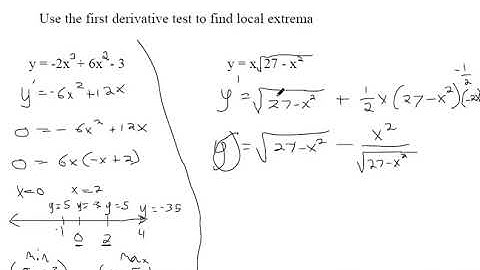 Use the first derivative test to find local extrema
y = -2x³ + 6x² - 3
y' = -6x² + 12x
0 = -6x² + 12x
0 = 6x(-x + 2)
x=0 x=2
y=5 y=-3 y=5 y=-35
-1 0 2 4
min max
y = x√27 - x²
y' = √27-x² + 1/2 x (27-x²)^-1/2 (-2x)
y' = √27-x² - x²/√27-x²